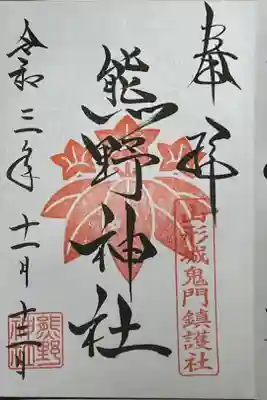 奉拝
山形城鬼門鎮護社
熊野神社
令和三年十一月十二日
熊野神社